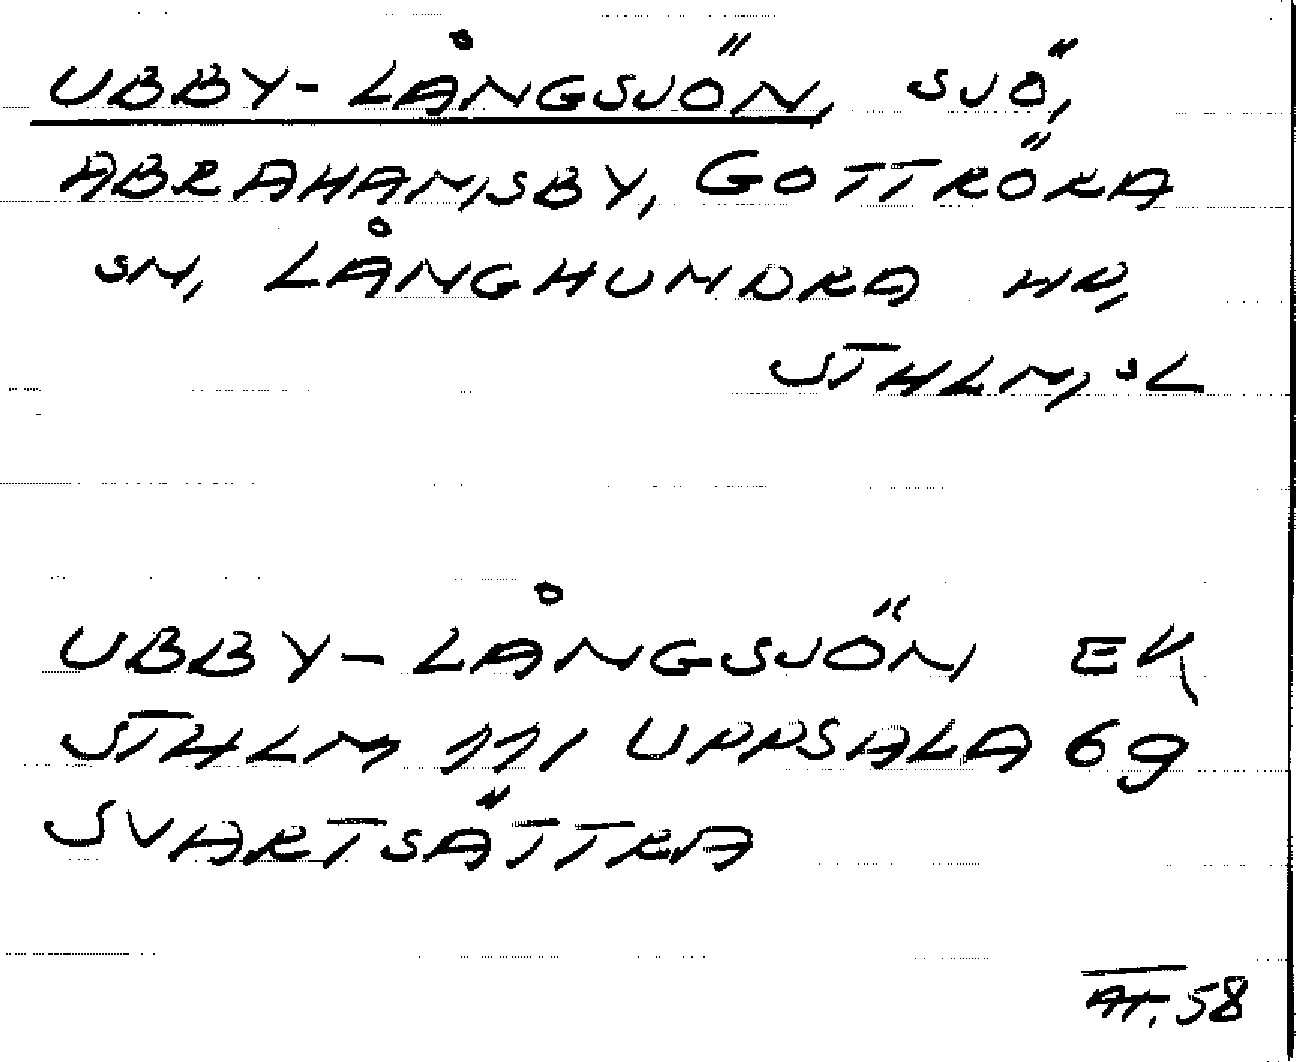 UBBY-LÅNGSJÖN, SJÖ,
ABRAHAMSBY, GOTTRÖRA
SN, LÅNGHUNDRA HD,
STHLM, SL
UBBY-LÅNGSJÖN EK
STHLM 111 UPPSALA 69
SVARTSÄTTRA
58